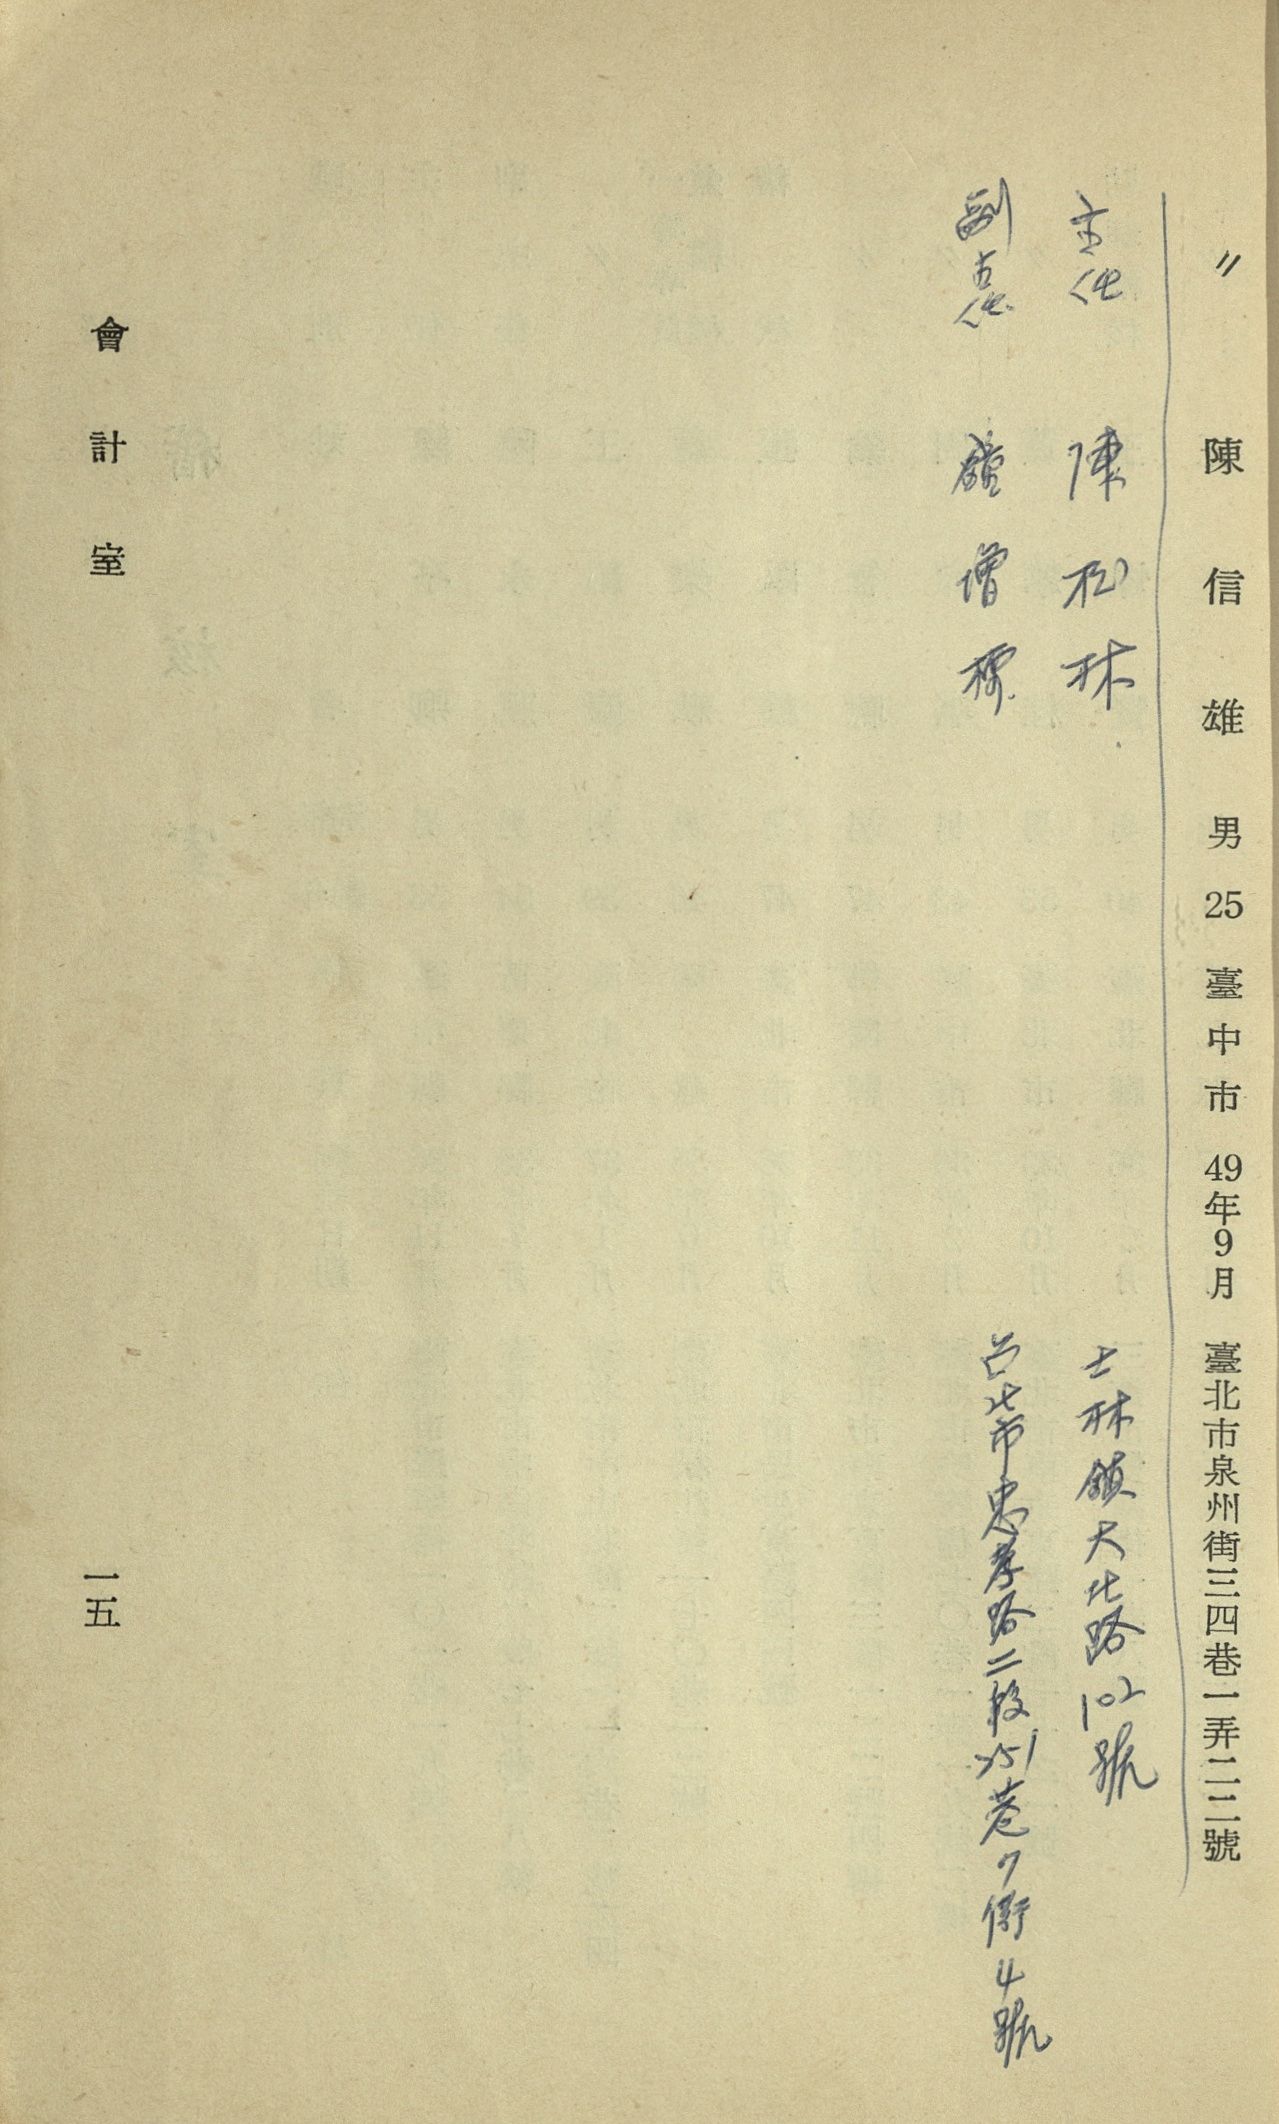 〃 陳信雄 男 25 臺中市 49年9月 臺北市泉州街三四巷一弄二二號
主任 陳松林 士林鎮大北路102號
副主任 鍾增標 台北市忠孝路二段251巷7衖4號
會計室 一五